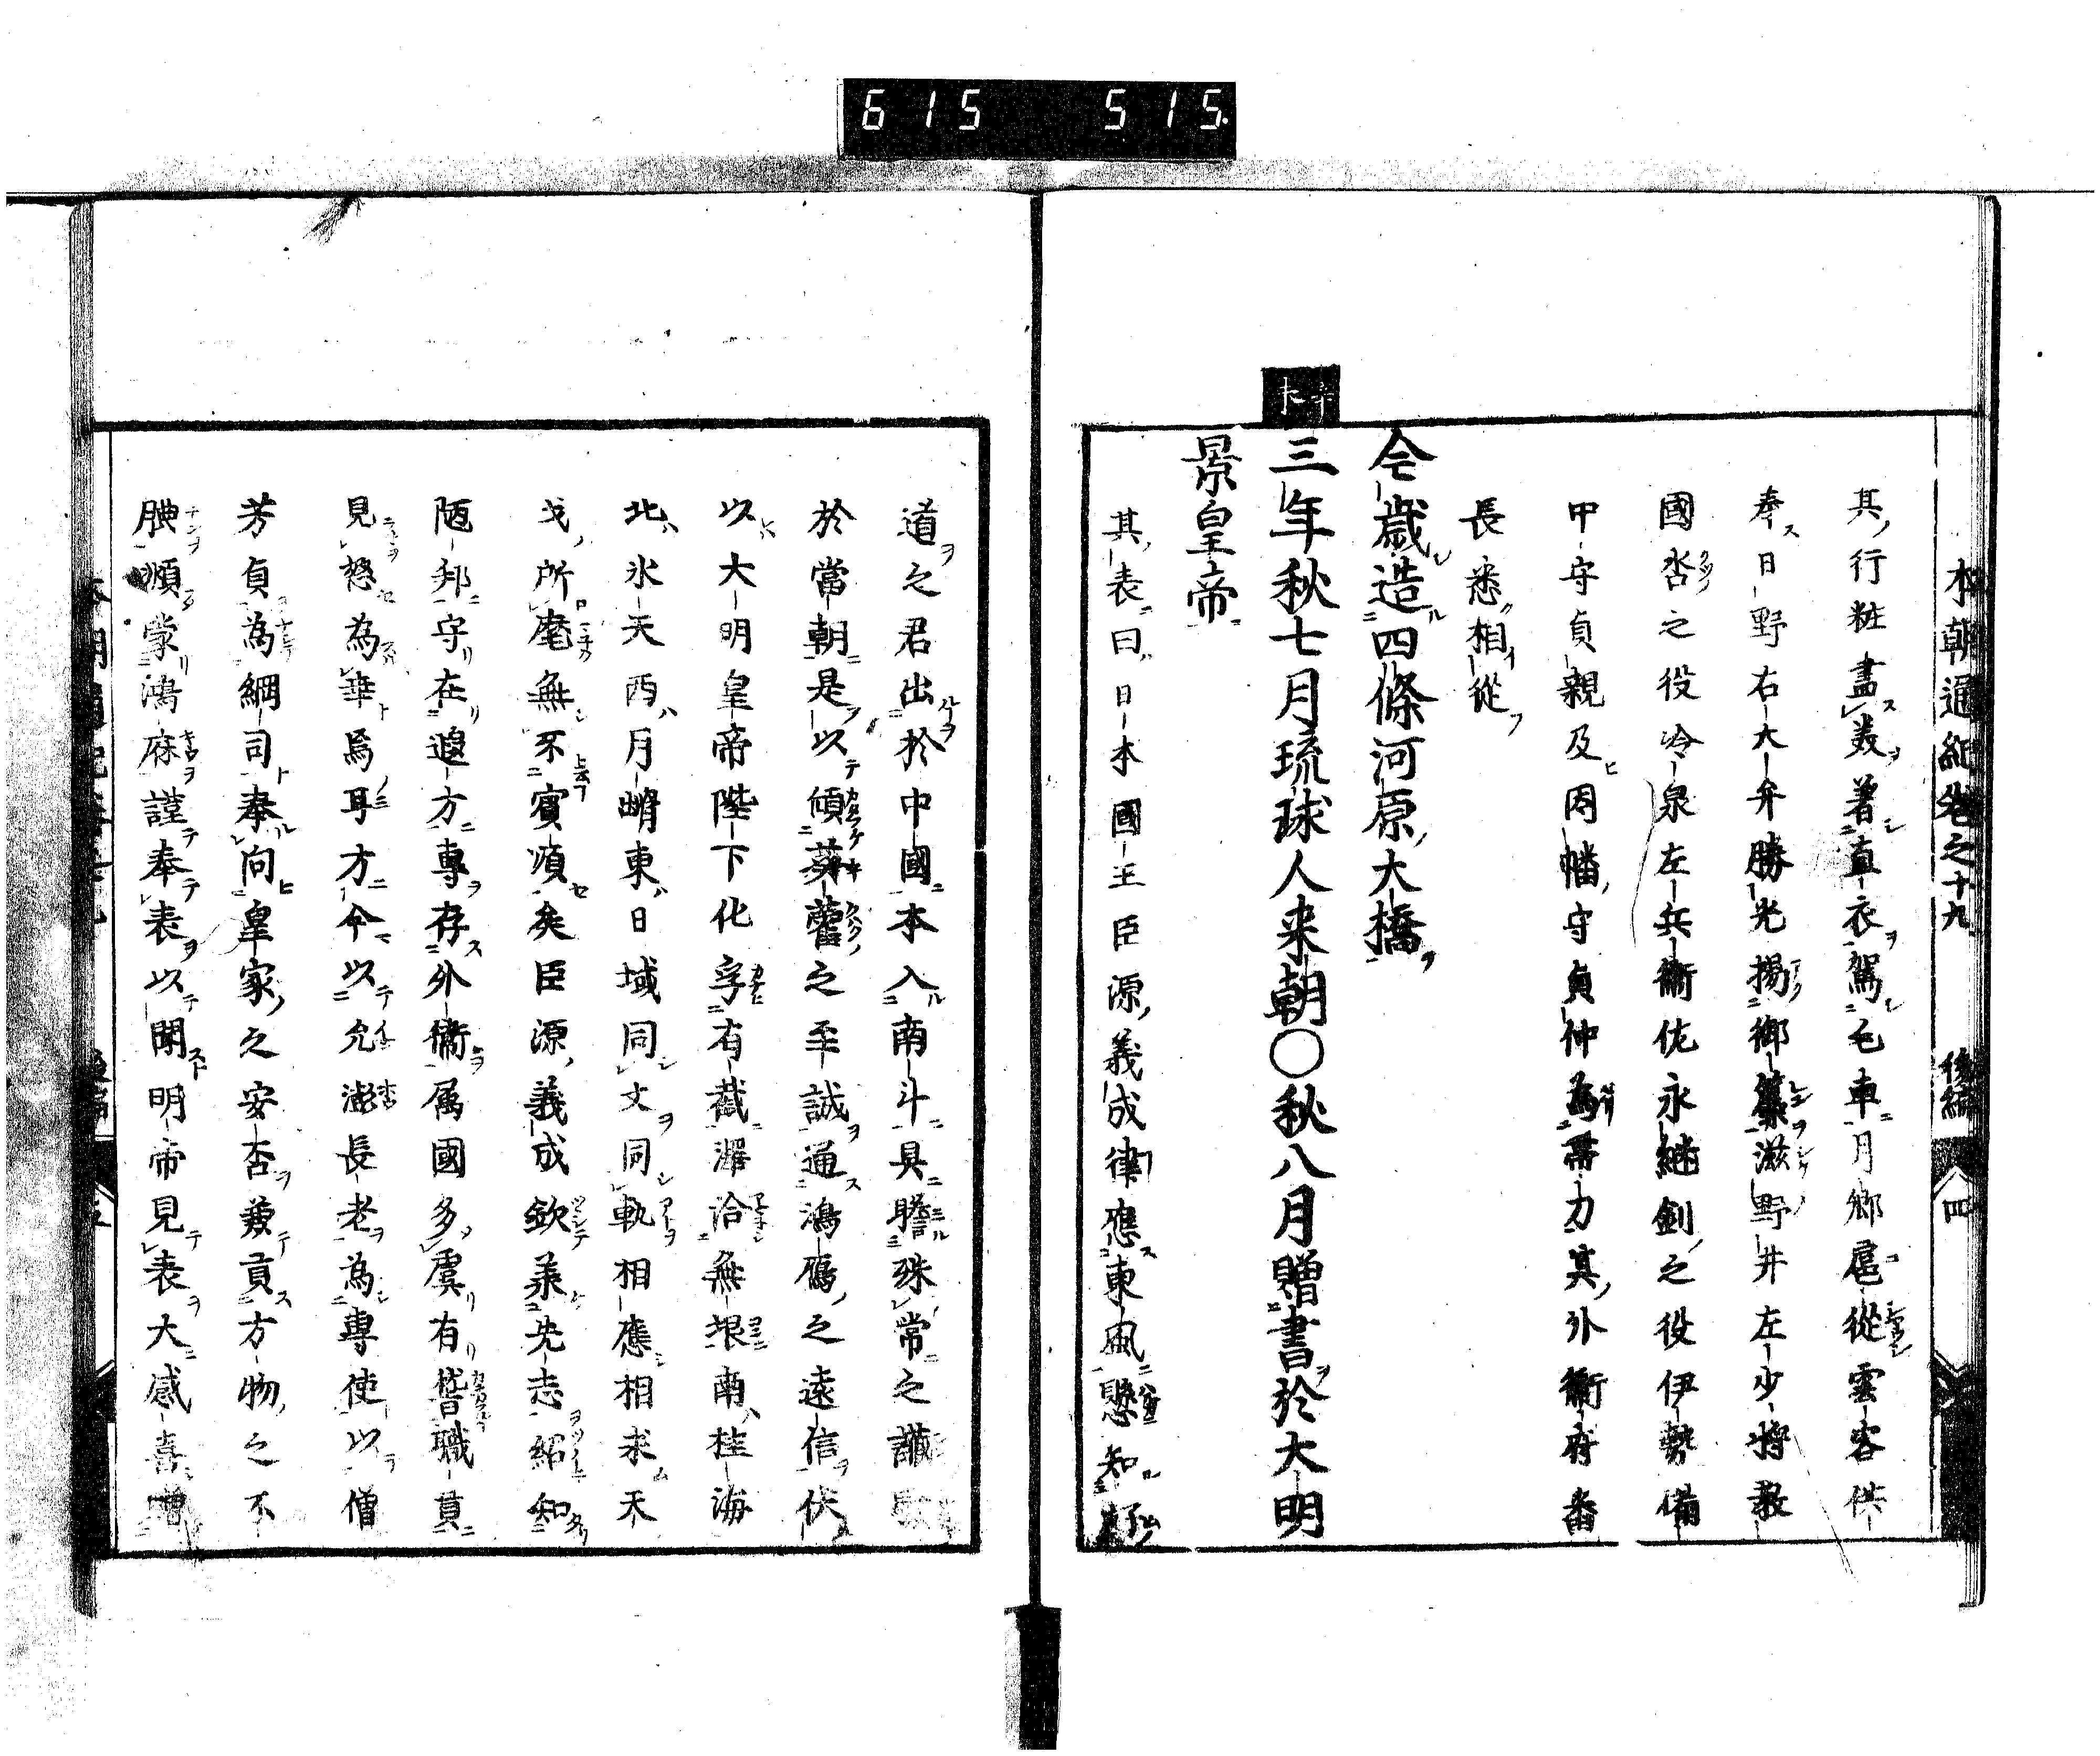 615 515
本朝通紀巻之十九 後編 四
其行粧盡美着直衣駕毛車月郷扈從雲客供
奉日野右大弁勝光揚御簾滋野井左少将教
國沓之役冷泉左兵衛佐永継釼之役伊勢備
中守貞親及因幡守貞仲為帯力其外衛府番
長悉相從
今歳造四條河原大橋
辛未
三年秋七月琉球人来朝〇秋八月贈書於大明
景皇帝
其表曰日本國王臣源義成律應東風懸知極
道之君出於中國本入南斗具瞻殊常之識
於當朝是以傾葵藿之至誠通鴻鴈之遠信伏
以大明皇帝陛下化孚有截澤洽無垠南桂海
北氷天西月𡺸東日域同文同軌相應相求天
戈所麾無不賓順矣臣源義成欽羕先志紹知
陋邦守在遐方專存外衛属國多虞有替職貢
見怒為幸焉耳方今以允澎長老為專使以僧
芳貞為綱司奉向皇家之安否兼貢方物之不
腆順蒙鴻庥謹奉表以聞明帝見表大感喜